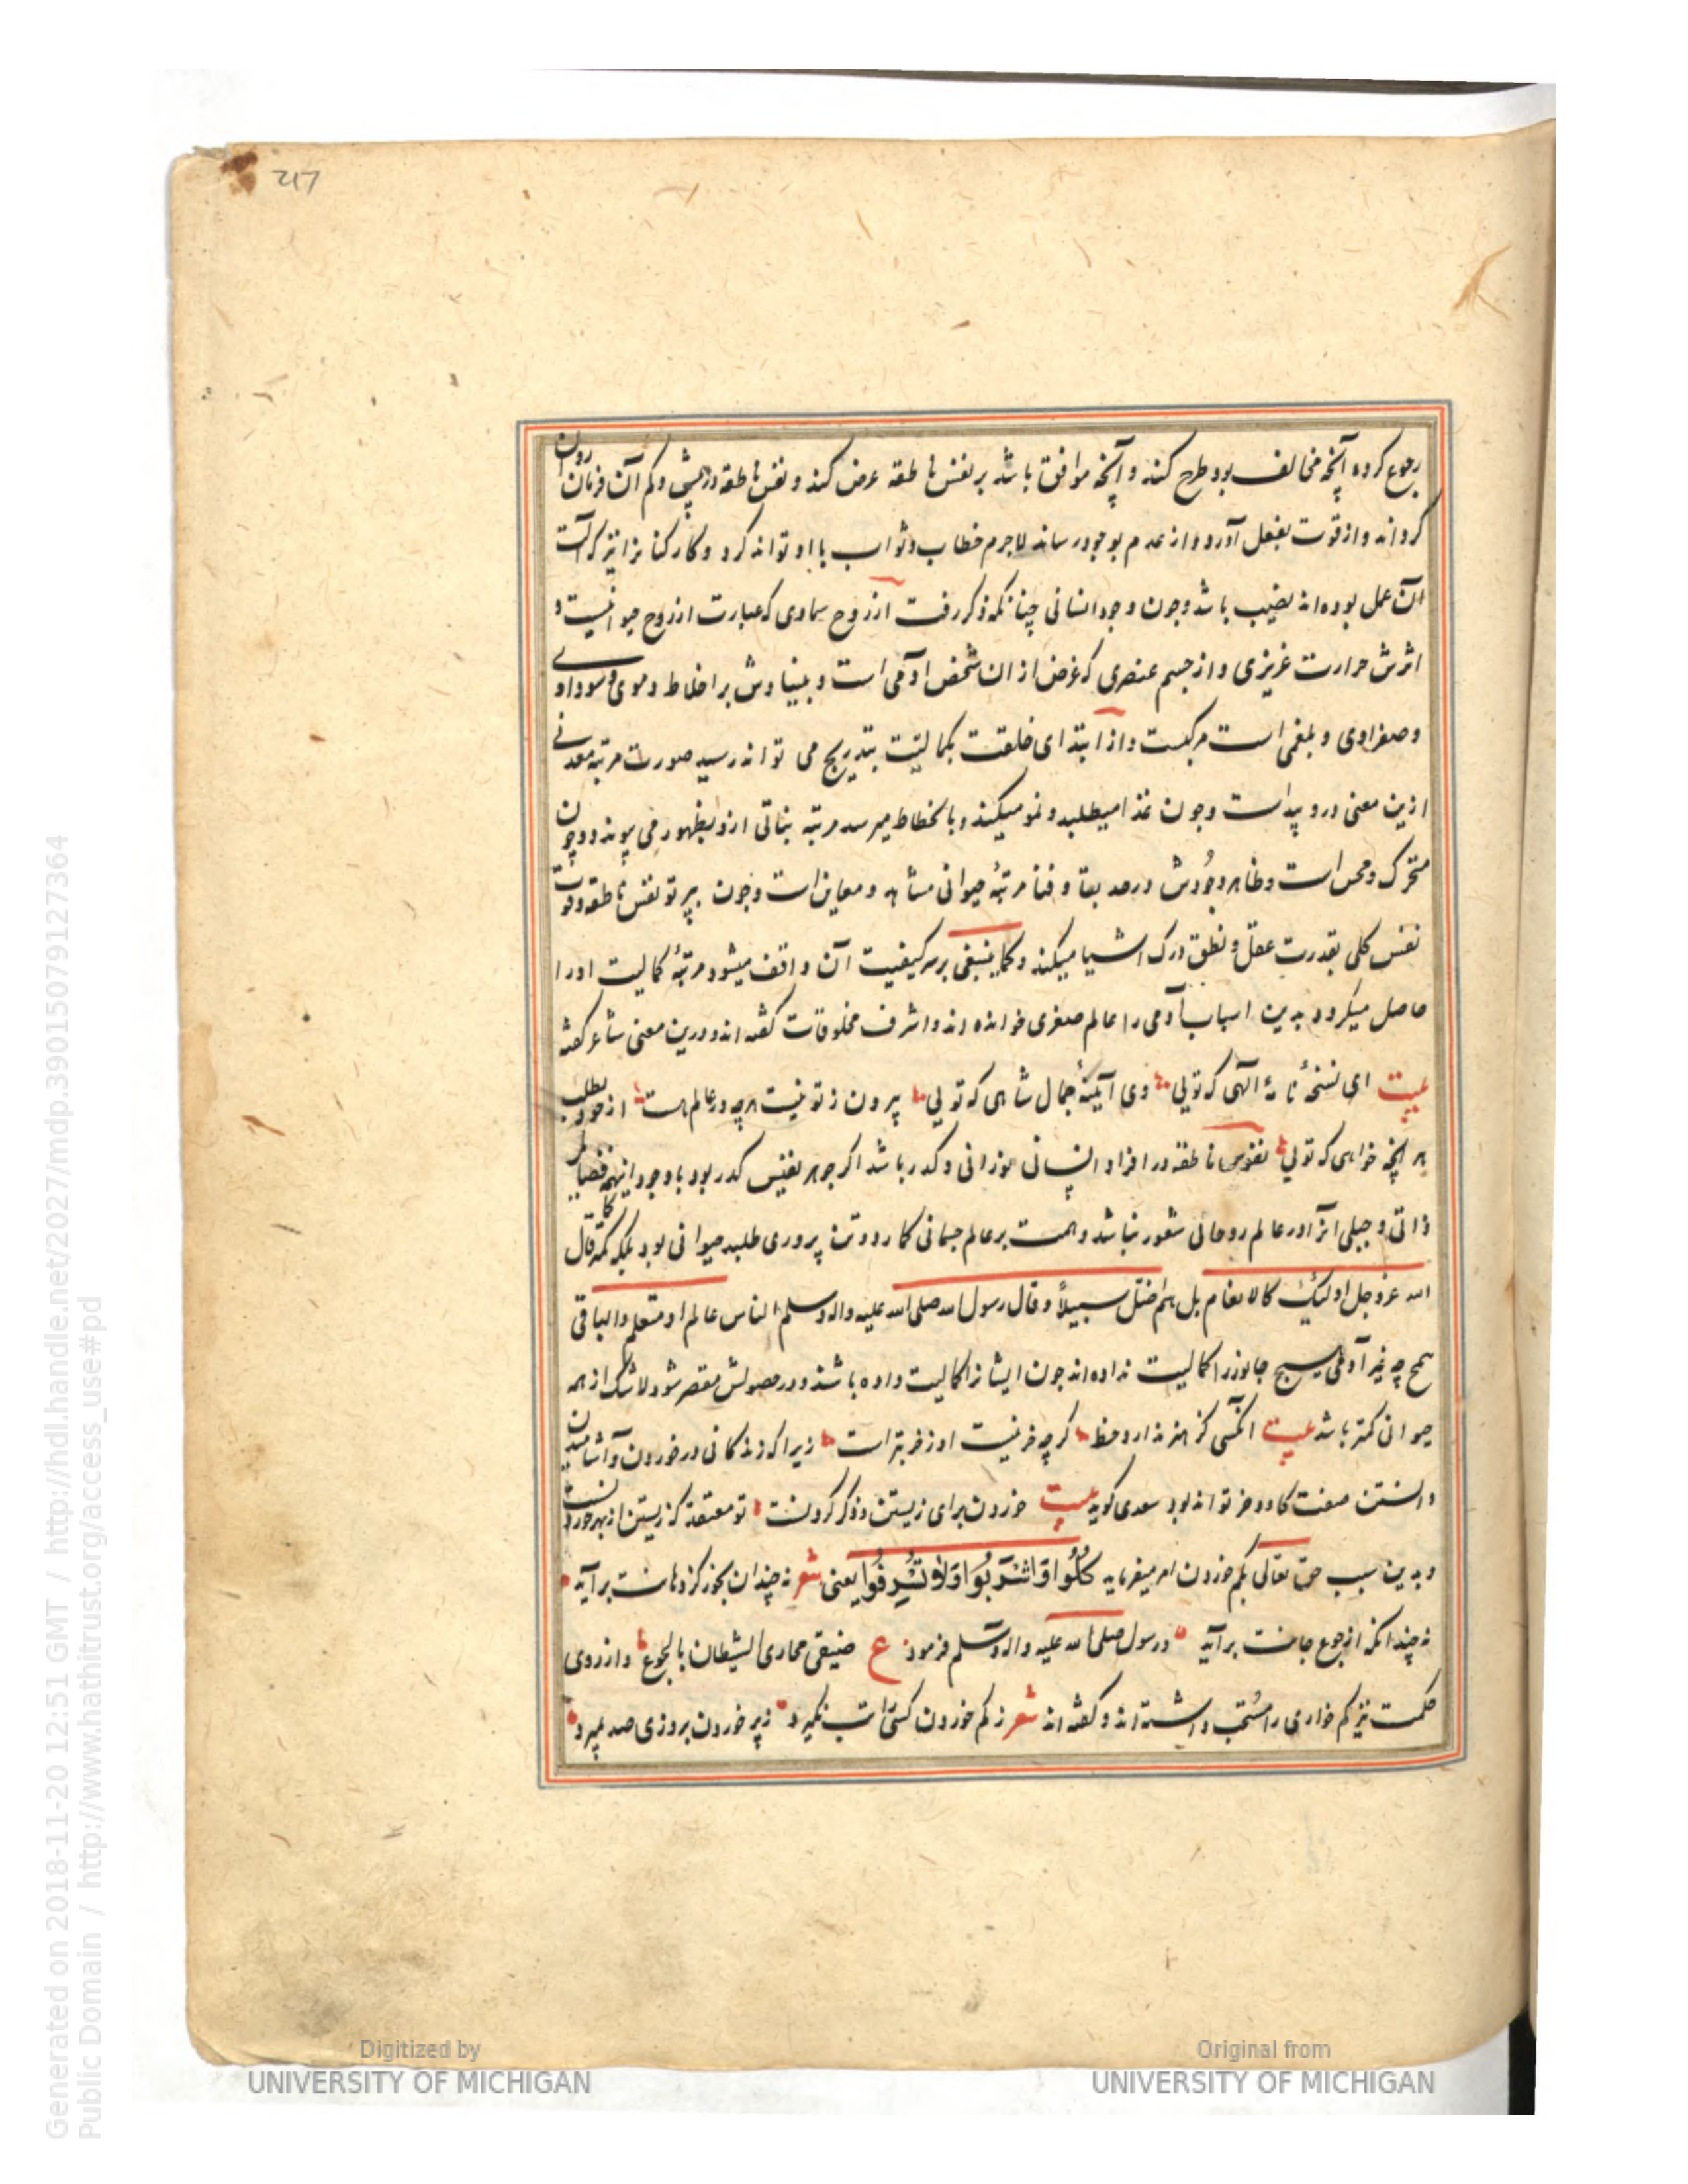 217
رجوع کرده آنچه مخالف بود طرح کند و آنچه موافق باشد بر نفس ناطقه عرض کند و نفس ناطقه در بیشی و کم آن فرمان روان
کرداند و از قوت بفعل آورد و از عدم بوجود رساند لاجرم خطاب و ثواب با او تواند کرد و کارکنانرا نیز که آلت
آن عمل بوده‌اند نصیب باشد و چون وجود انسانی چنانکه ذکر رفت از روح سماوی که عبارت از روح حیوانیست و
اثرش حرارت غریزی و از جسم عنصری که غرض از ان شخص آدمی است و بنیادش بر اخلاط دموی و سوداوی
و صفراوی و بلغمی است مرکبست و از ابتدای خلقت بکمالیت بتدریج می تواند رسید صورت مرتبه معدنی
ازین معنی درو پیداست و چون غذا میطلبد و نمو میکند و بانحطاط میرسد مرتبه نباتی ازو بظهور می پیوندد و چون
متحرک و محس است و ظاهر وجودش در صدد بقا و فنا مرتبهٔ حیوانی مشاهد و معاین است و چون بپرتو نفس ناطقه و قوت
نفس کلی بقدرت عقل و نطق درک اشیا میکند و کما ینبغی بر سر کیفیت آن واقف میشود مرتبهٔ کمالیت او را
حاصل میکردد بدین اسباب آدمی را عالم صغری خوانده اند و اشرف مخلوقات گفته اند و درین معنی شاعر گفته
بیت ای نسخهٔ نامهٔ الهی که تویی وی آیینهٔ جمال شاهی که تویی بیرون ز تو نیست هرچه در عالم هست از خود بطلب
هر آنچه خواهی که تویی نفوس ناطقه در افراد انسانی نورانی و کدر باشد اکر جوهر نفیس کدر بود با وجود اینهمه فضایل
ذاتی و جبلی انرا در عالم روحانی شعور نباشد و همت بر عالم جسمانی کمارد و تن پروری طلبد حیوانی بود بلکه کمتر کما قال
الله عز و جل اولئک کالانعام بل هم اضل سبیلاً و قال رسول الله صلی الله علیه واله وسلم الناس عالم او متعلم و الباقی
همج چه غیر آدمی هیچ جانور را کمالیت نداده‌اند چون ایشانرا کمالیت داده باشند و در حصولش مقصر شود لاشک از همه
حیوانی کمتر باشد بیت انکسی کز هنر ندارد حظ کرچه خر نیست او ز خر بتر است زیرا که زندگانی در خوردن و آشامیدن
دانستن صفت کاو و خر تواند بود سعدی کوید بیت خوردن برای زیستن و ذکر کردنست تو معتقد که زیستن از بهر خوردنست
و بدین سبب حق تعالی بکم خوردن امر میفرماید کُلُوا وَاشْرَبُوا وَلَا تُسْرِفُوا یعنی شعر نه چندان بخور کز دهانت برآید
نه چندانکه از جوع جانت برآید و رسول صلی الله علیه واله وسلم فرمود ع ضیقی مجاری الشیطان بالجوع و از روی
حکمت نیز کم خواری را مستحب داشته اند و گفته اند شعر ز کم خوردن کسی را تب نگیرد ز پر خوردن بروزی صد بمیرد
Digitized by
UNIVERSITY OF MICHIGAN
Original from
UNIVERSITY OF MICHIGAN
Generated on 2018-11-20 12:51 GMT / http://hdl.handle.net/2027/mdp.39015079127364
Public Domain / http://www.hathitrust.org/access_use#pd